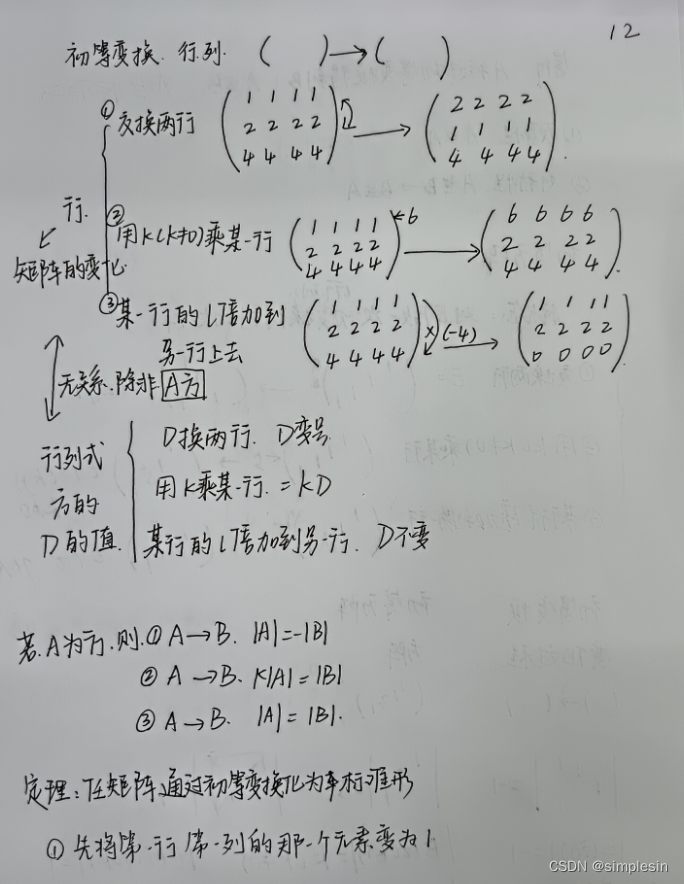 12
初等变换. 行列. ( ) → ( )
①交换两行 (1 1 1 1 → (2 2 2 2
2 2 2 2 1 1 1 1
4 4 4 4) 4 4 4 4).
行.
矩阵的变化
②用k(k≠0)乘某一行 (1 1 1 1 ←6 → (6 6 6 6
2 2 2 2 2 2 2 2
4 4 4 4) 4 4 4 4).
③某一行的l倍加到 (1 1 1 1 ×(-4) → (1 1 1 1
另一行上去 2 2 2 2 2 2 2 2
4 4 4 4) 0 0 0 0).
无关系.除非A方
行列式
方的
D的值.
D换两行. D变号
用K乘某一行. = KD
某行的l倍加到另一行. D不变
若.A为方.则.① A→B. |A|=-|B|
② A→B. K|A|=|B|
③ A→B. |A|=|B|.
定理:任矩阵通过初等变换化为标准形
① 先将第一行第一列的那个元素变为1
CSDN @simplesin